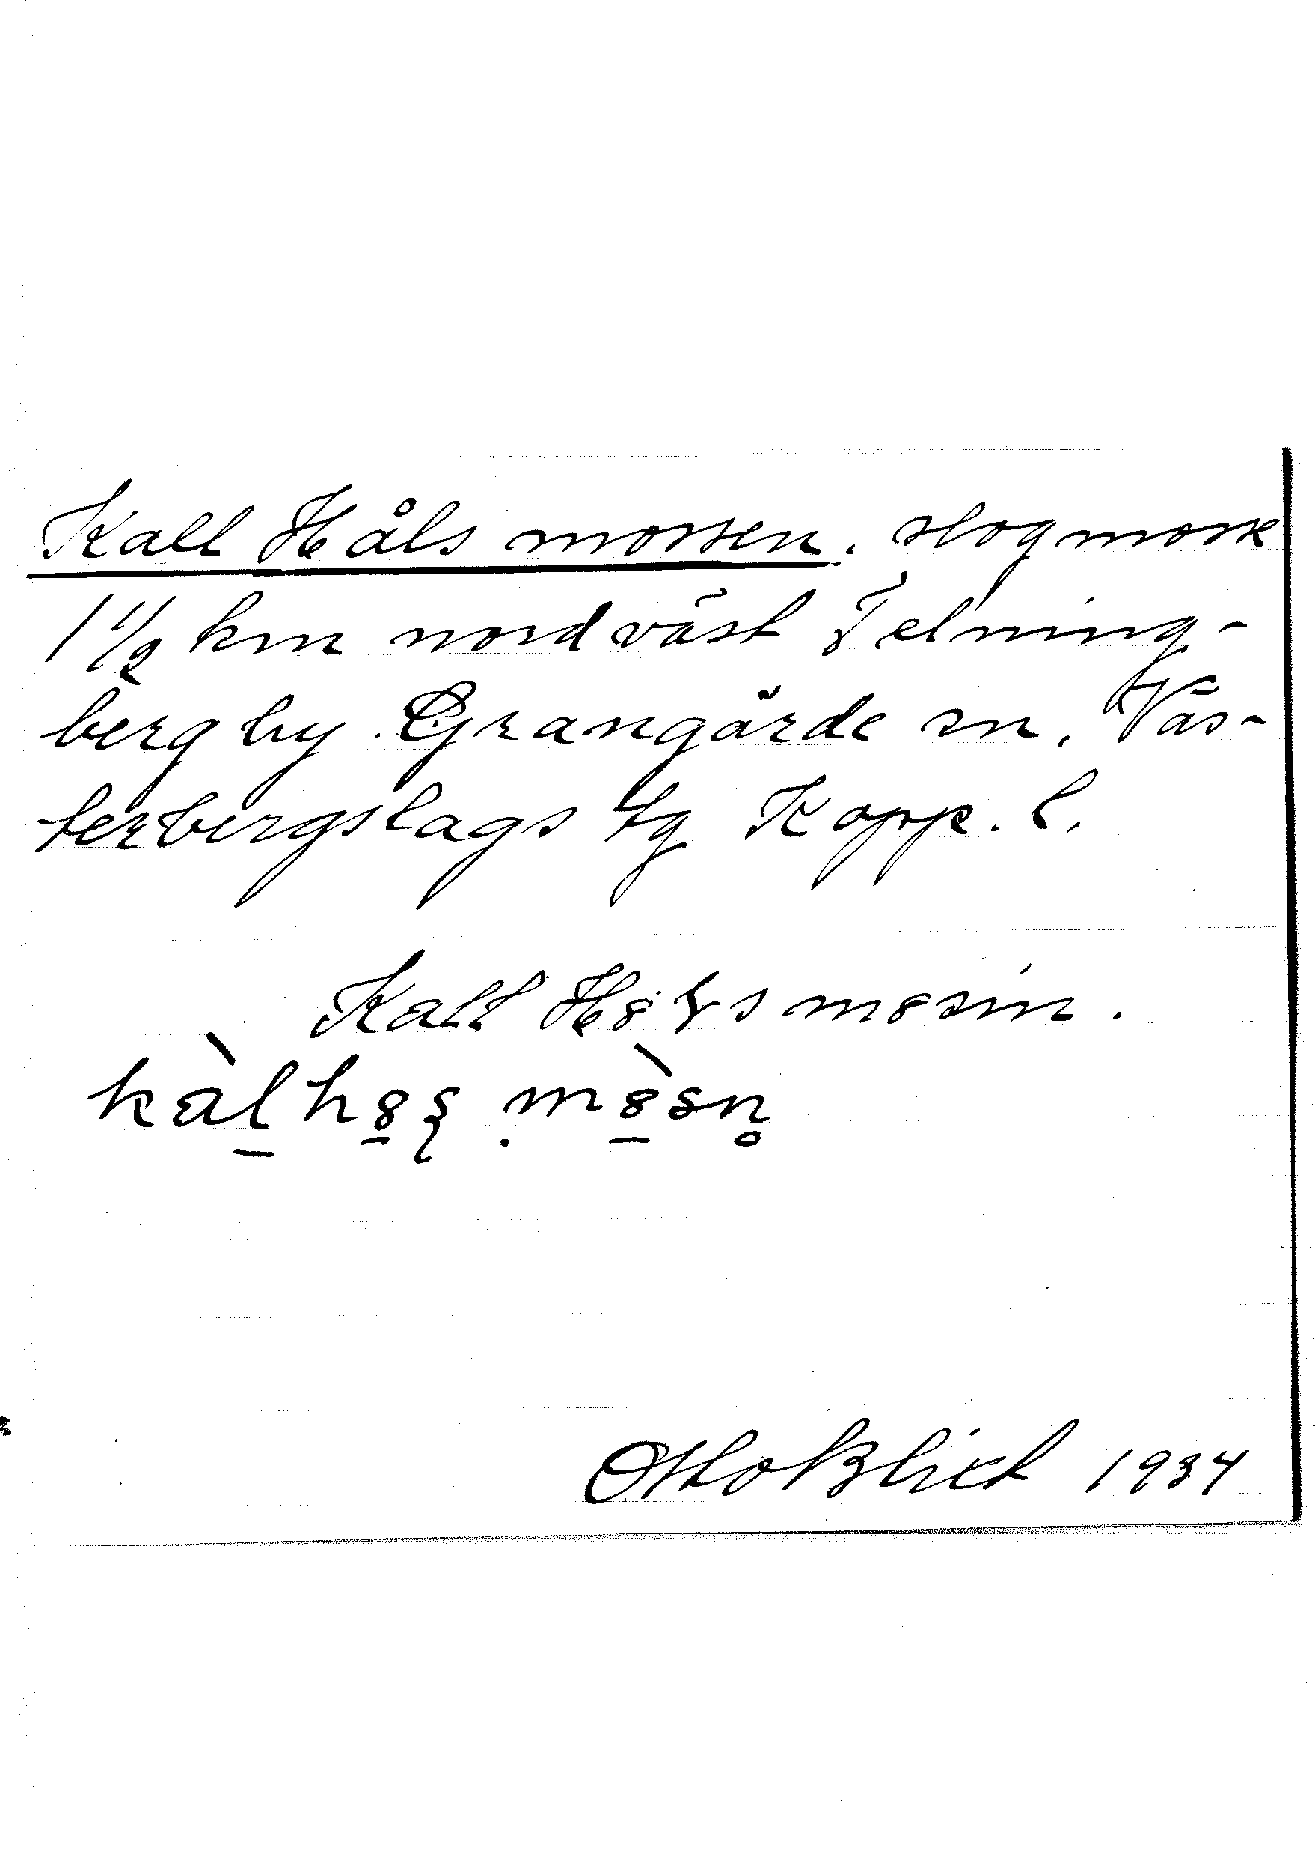 Kall Håls mossen. slogmosse
1 1/2 km nordväst Telning-
berg by. Grangärde sn. Väs-
terbergslags tg Kopp. l.
Kall
kàl
Otto Blixt 1934